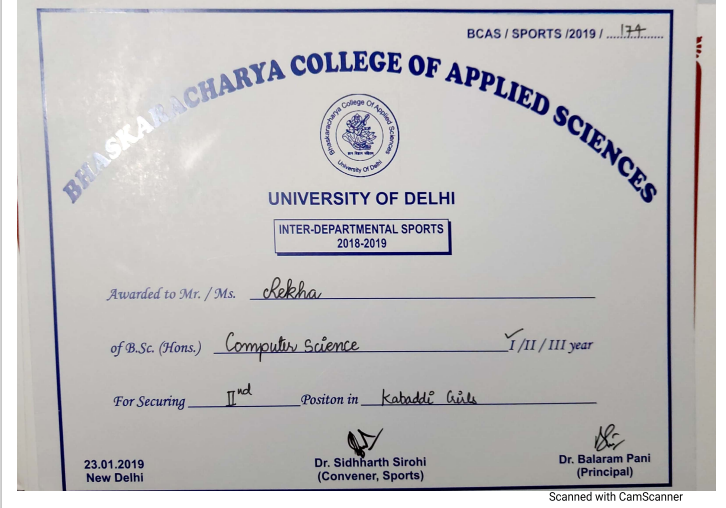 BCAS / SPORTS /2019 / ...174...
BHASKARACHARYA COLLEGE OF APPLIED SCIENCES
Bhaskaracharya College Of Applied Sciences
University Of Delhi
UNIVERSITY OF DELHI
INTER-DEPARTMENTAL SPORTS
2018-2019
Awarded to Mr. / Ms. Rekha
of B.Sc. (Hons.) Computer Science ✓I /II / III year
For Securing IInd Positon in Kabaddi Girls
23.01.2019
New Delhi
Dr. Sidhharth Sirohi
(Convener, Sports)
Dr. Balaram Pani
(Principal)
Scanned with CamScanner